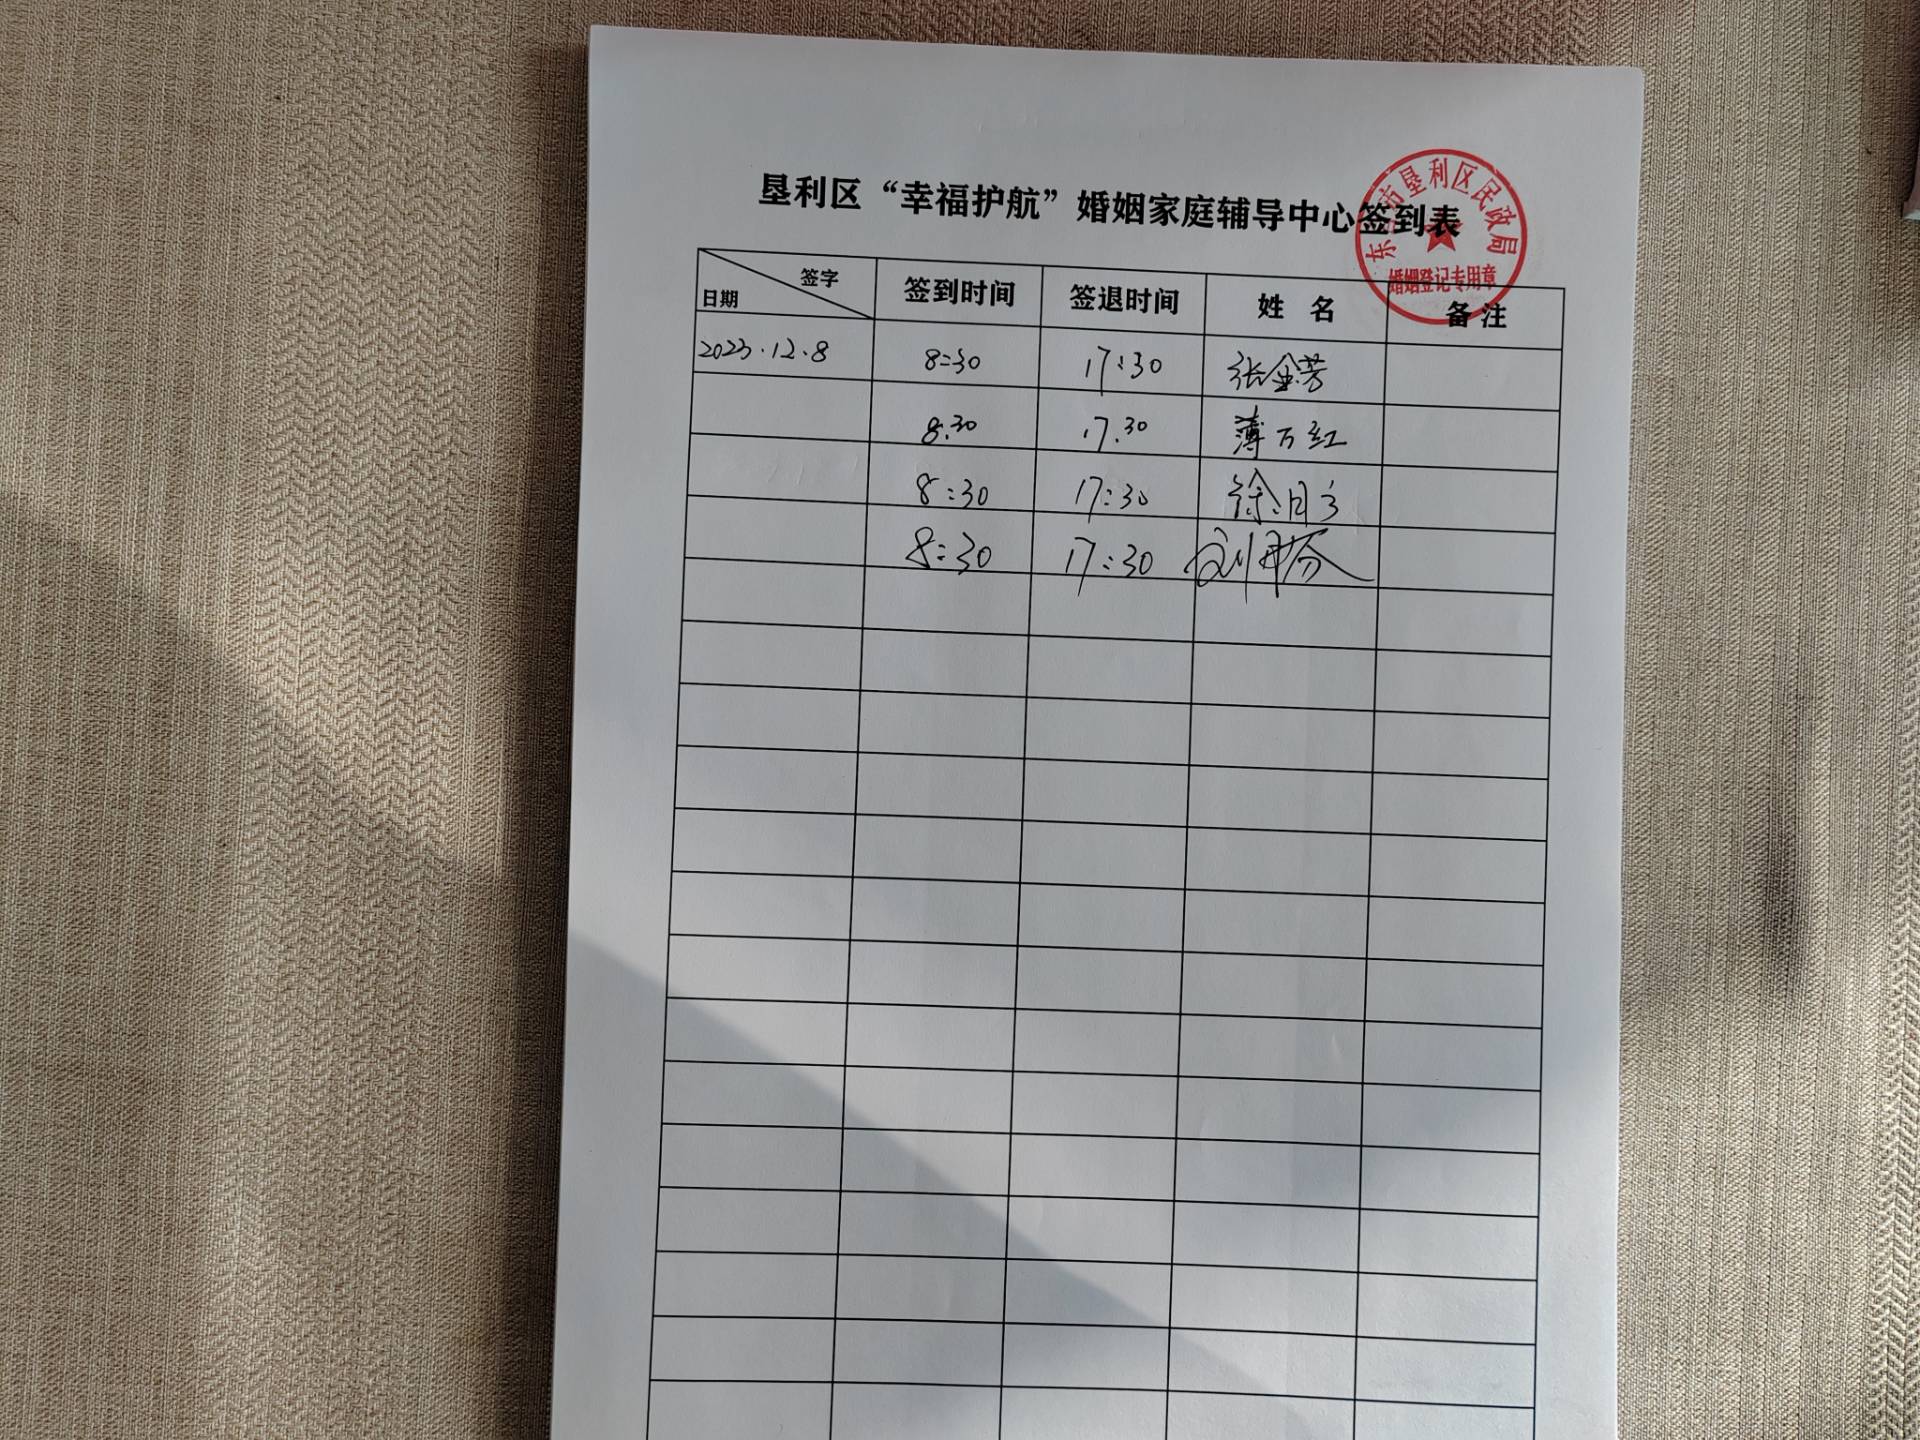 垦利区“幸福护航”婚姻家庭辅导中心签到表
东 市垦利区民政局
婚姻登记专用章
签字
日期
签到时间 签退时间 姓 名 备 注
2023.12.8 8:30 17:30 张金芳
8.30 17.30 薄万红
8:30 17:30 徐
8:30 17:30 刘